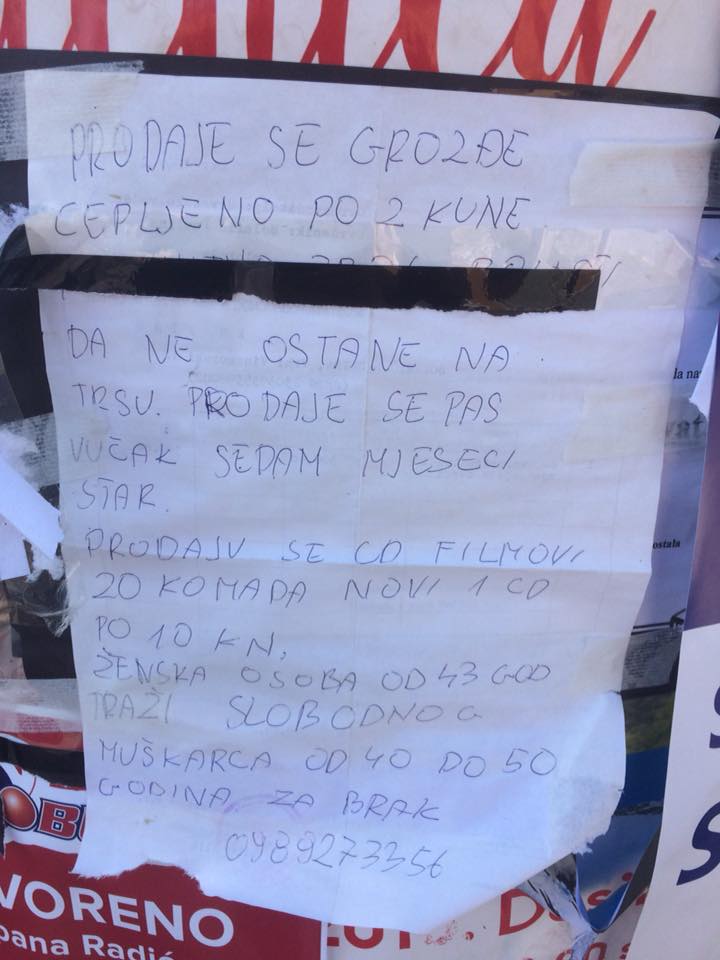 PRODAJE SE GROZĐE
CEPLJENO PO 2 KUNE
DA NE OSTANE NA
TRSU. PRODAJE SE PAS
VUČAK SEDAM MJESECI
STAR.
PRODAJU SE CD FILMOVI
20 KOMADA NOVI 1 CD
PO 10 KN,
ŽENSKA OSOBA OD 43 GOD
TRAŽI SLOBODNOG
MUŠKARCA OD 40 DO 50
GODINA ZA BRAK
0989273356
la na
ostala
VORENO
pana Radić